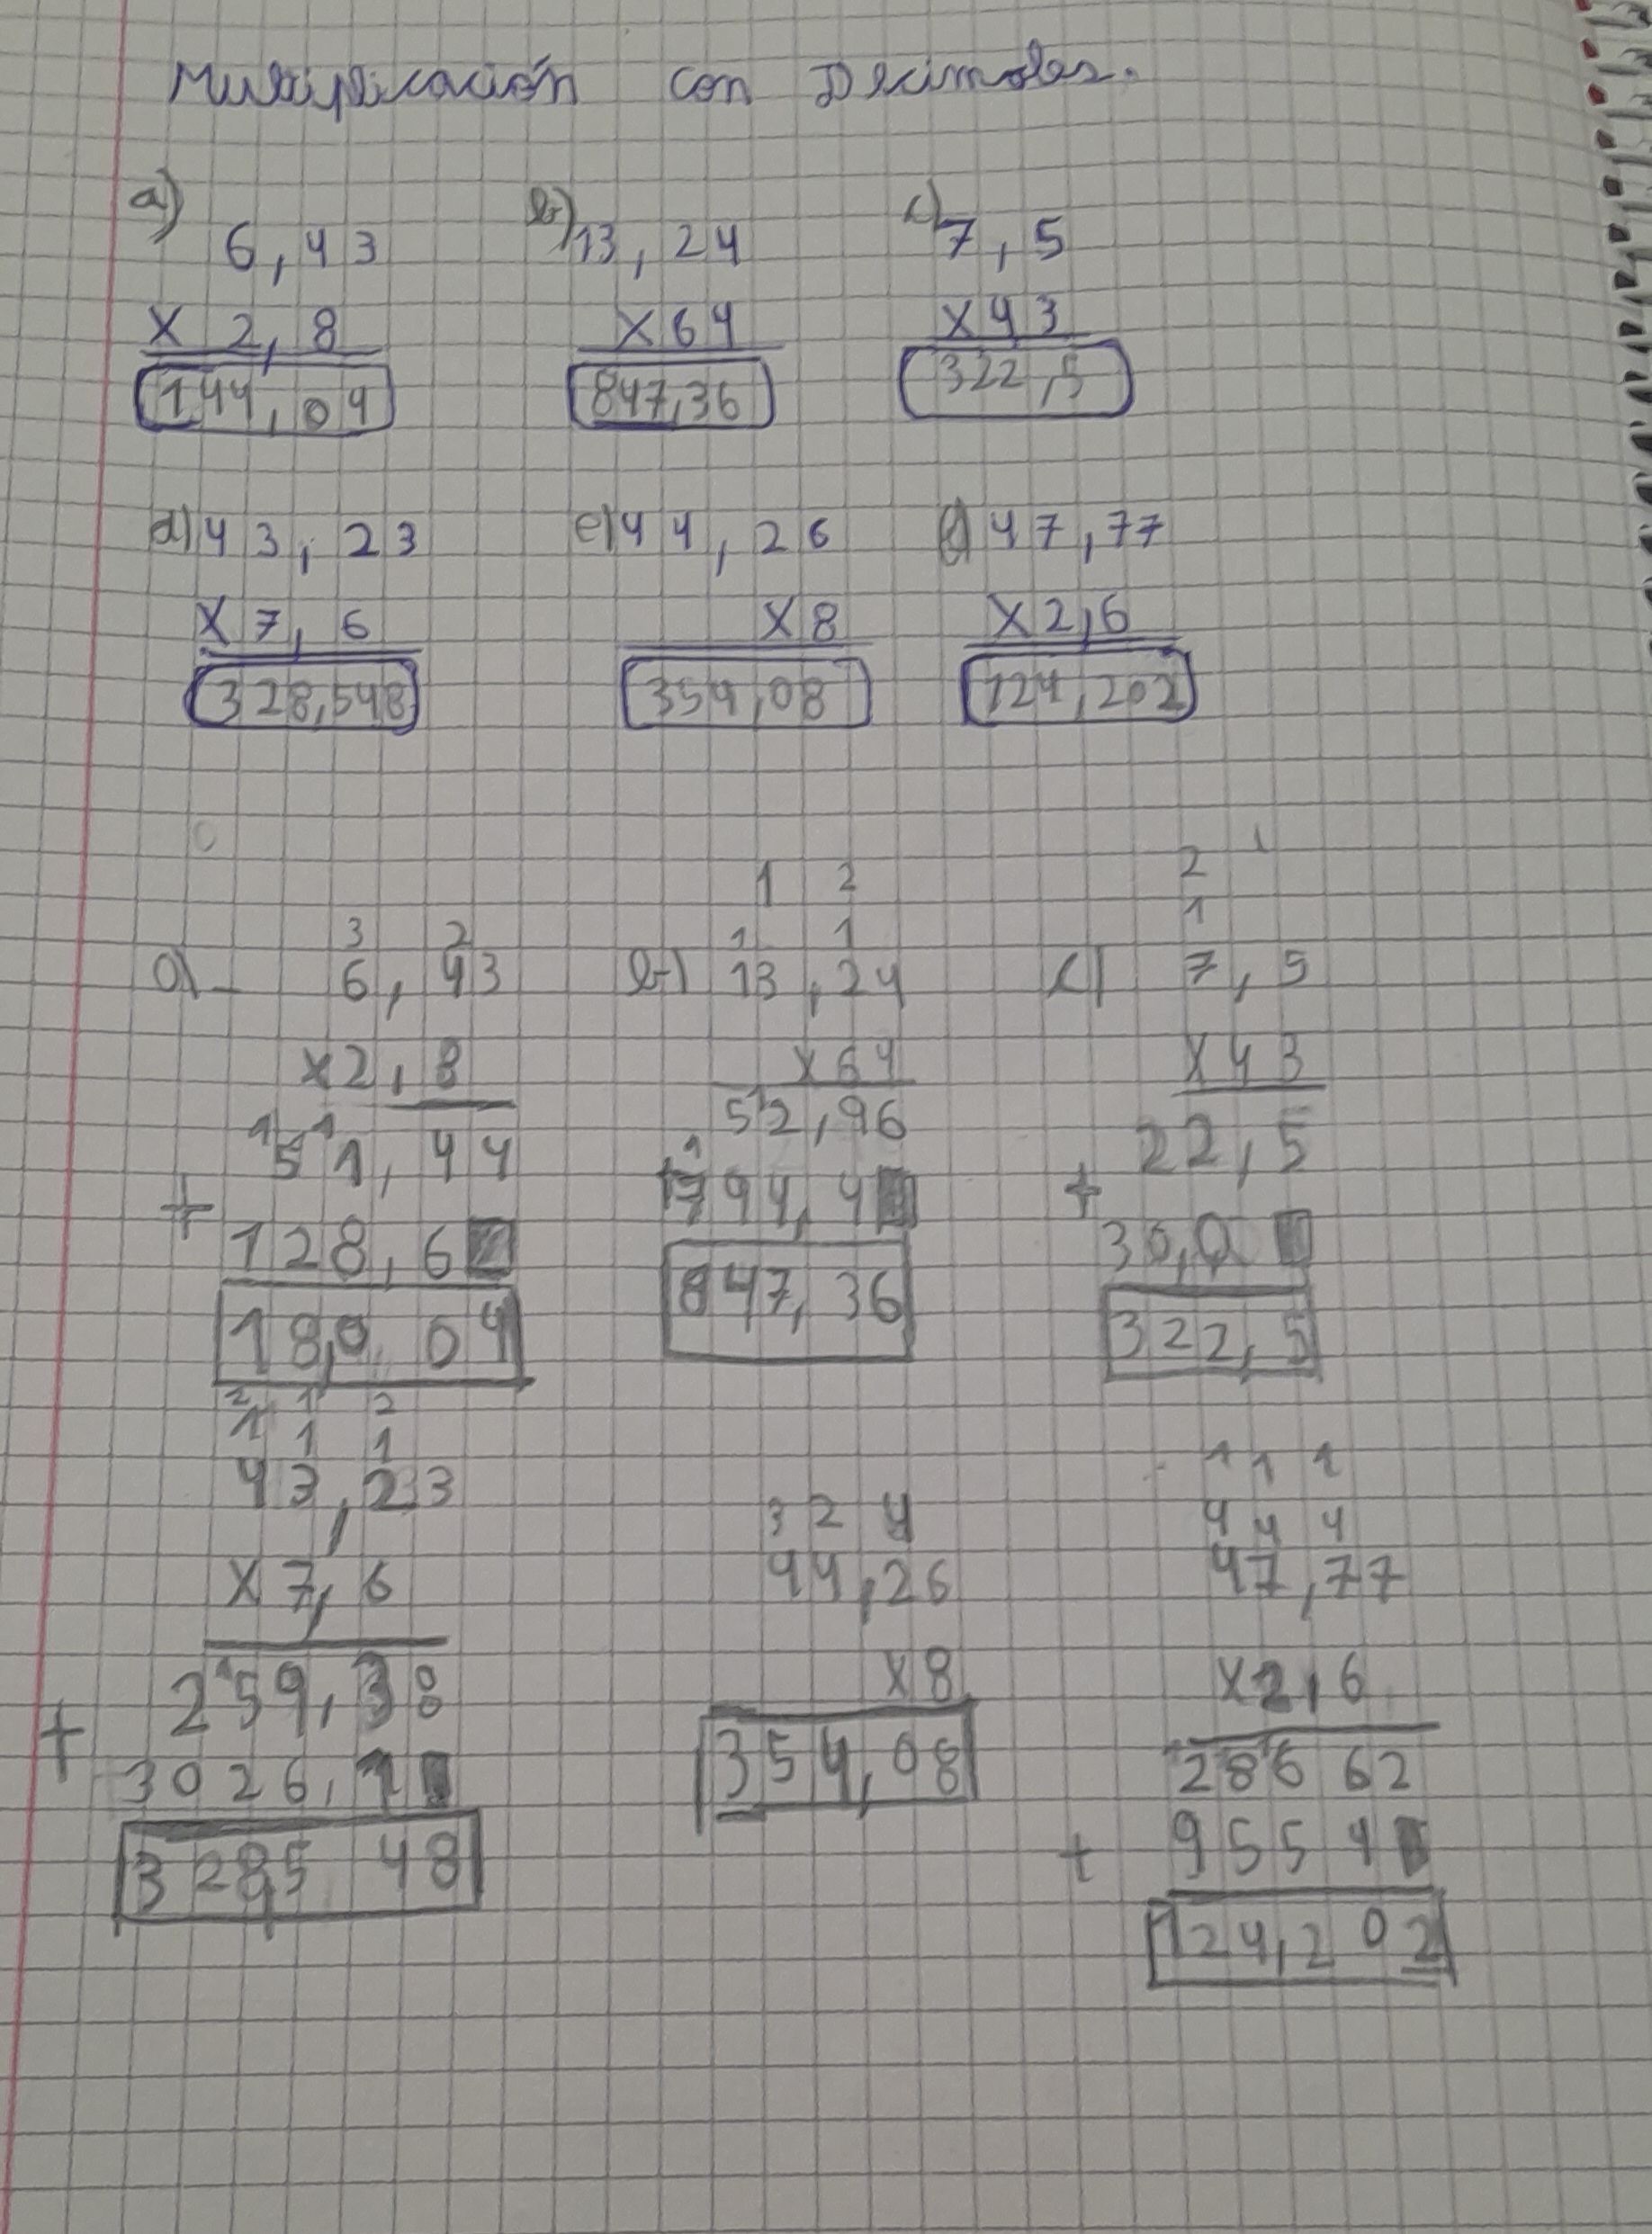 Multiplicación con Decimales.
a) b) c)
6,43 13,24 7,5
X 2,8 X64 X43
144,04 847,36 322,5
d) 43,23 e) 44,26 f) 47,77
X7,6 X8 X2,6
328,548 354,08 124,202
2 1
1 2 1
3 2 1 1
a) 6,43 b) 13,24 c) 7,5
x2,8 x64 x43
1 1 51,44 52,96 22,5
+ 128,6 794,4 + 30,0
18,0 04 847,36 322,5
2 1 2
1 1 1 1 1 1
43,23 3 2 4 4 4 4
X7,6 44,26 47,77
259,38 x8 x2,6
+ 3026,1 354,08 286 62
3 28,5 48 + 955 4
124,2 0 2